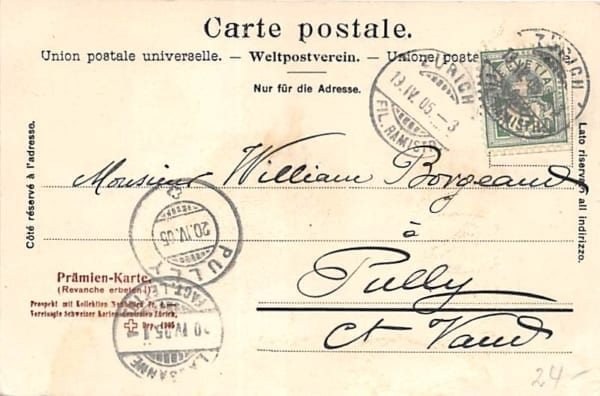 Carte postale.
Union postale universelle. – Weltpostverein. – Unione posta
Nur für die Adresse.
ZÜRICH
19.IV.05.–3
FIL. RÄMISTR.
ZÜRICH
HELVETIA
Côté réservé à l'adresse.
Lato riservato all indirizzo.
Monsieur William Borgeaud
à
Pully
Ct Vaud
PULLY
20.IV.05
Prämien-Karte.
(Revanche erbeten!)
Prospekt mit Kollektion
Vereinigte Schweizer Karten-Zentralen Zürich,
Dep. 1905
LAUSANNE
20 IV 05
24-